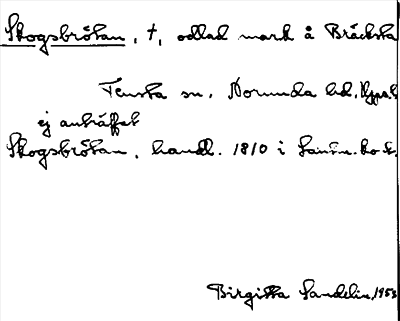 Skogsbråtan, †, odlad mark å Bräcksta
Tensta sn. Norunda hd. Uppsl.
ej anträffat
Skogsbråtan, handl. 1810 i Lantm.kont.
Birgitta Sandelin, 1953